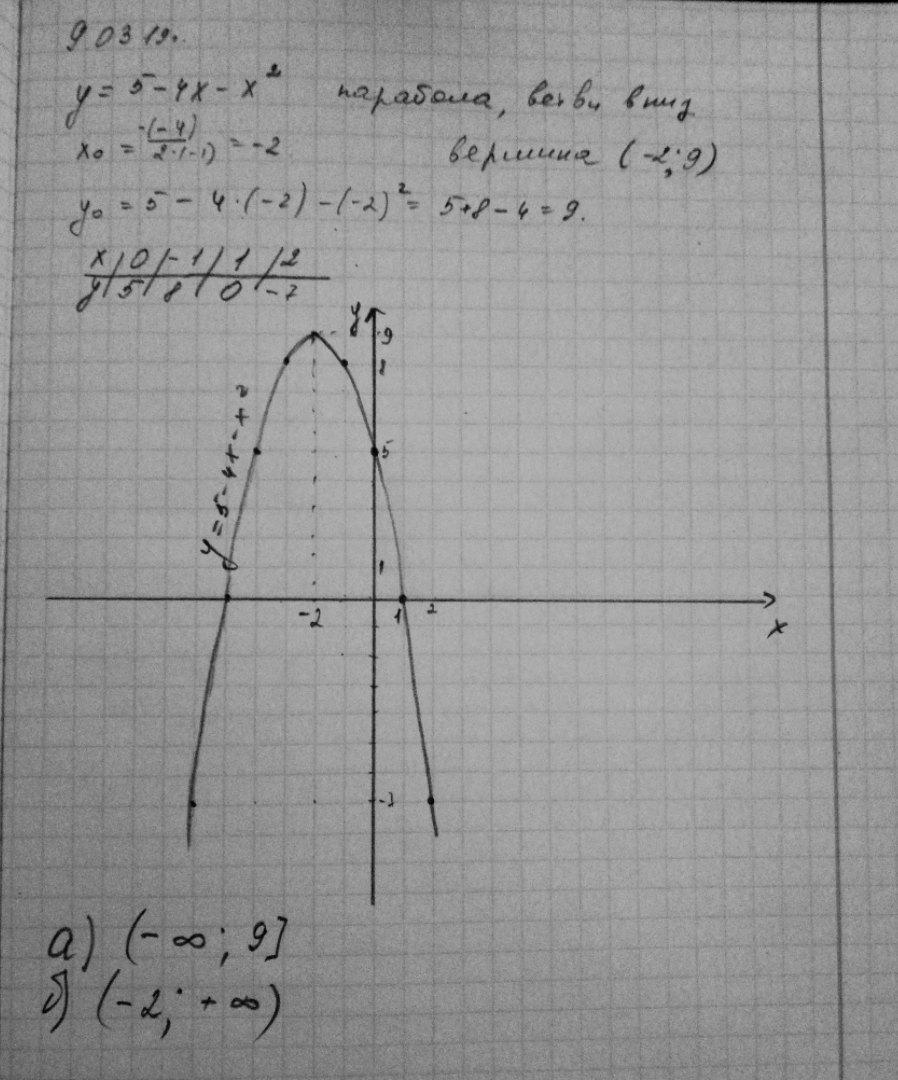 9 03 19.
y = 5 - 4x - x² парабола, ветви вниз
x₀ = -(-4)/2·(-1) = -2 вершина (-2; 9)
y₀ = 5 - 4·(-2) - (-2)² = 5+8-4 = 9.
x | 0 | -1 | 1 | 2
y | 5 | 8 | 0 | -7
y
9
8
y = 5-4x-x²
5
1
-2 1 2
x
-7
а) (-∞; 9]
б) (-2; +∞)